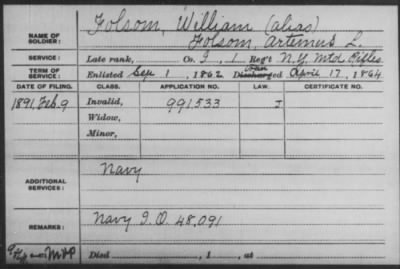 Folsom, William (alias)
NAME OF SOLDIER: Folsom, Artemus L.
SERVICE: Late rank, Co. I, 1 Reg't N.Y. Mtd Rifles
TERM OF SERVICE: Enlisted Sep 1, 1862 Discharged April 17, 1864
DATE OF FILING. CLASS. APPLICATION NO. LAW. CERTIFICATE NO.
1891, Feb. 9 Invalid, 991.533 J
Widow,
Minor,
ADDITIONAL SERVICES: Navy
REMARKS: Navy I.O. 48.091
Died , 1 , at